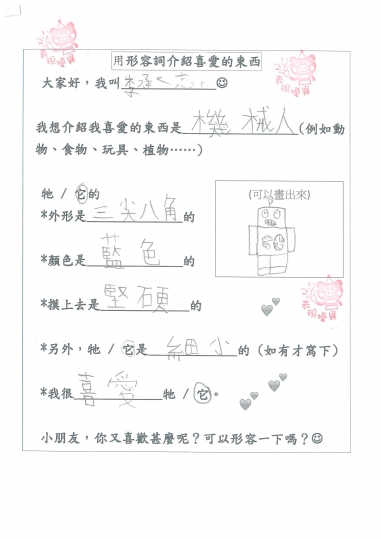 用形容詞介紹喜愛的東西
大家好，我叫李
我想介紹我喜愛的東西是機械人(例如動
物、食物、玩具、植物⋯⋯)
牠 / 它的
(可以畫出來)
*外形是三尖八角的
*顏色是藍色的
*摸上去是堅硬的
*另外，牠 / 它是細小的（如有才寫下）
*我很喜愛牠 / 它。
小朋友，你又喜歡甚麼呢？可以形容一下嗎？☺
表現優異
表現優異
表現優異